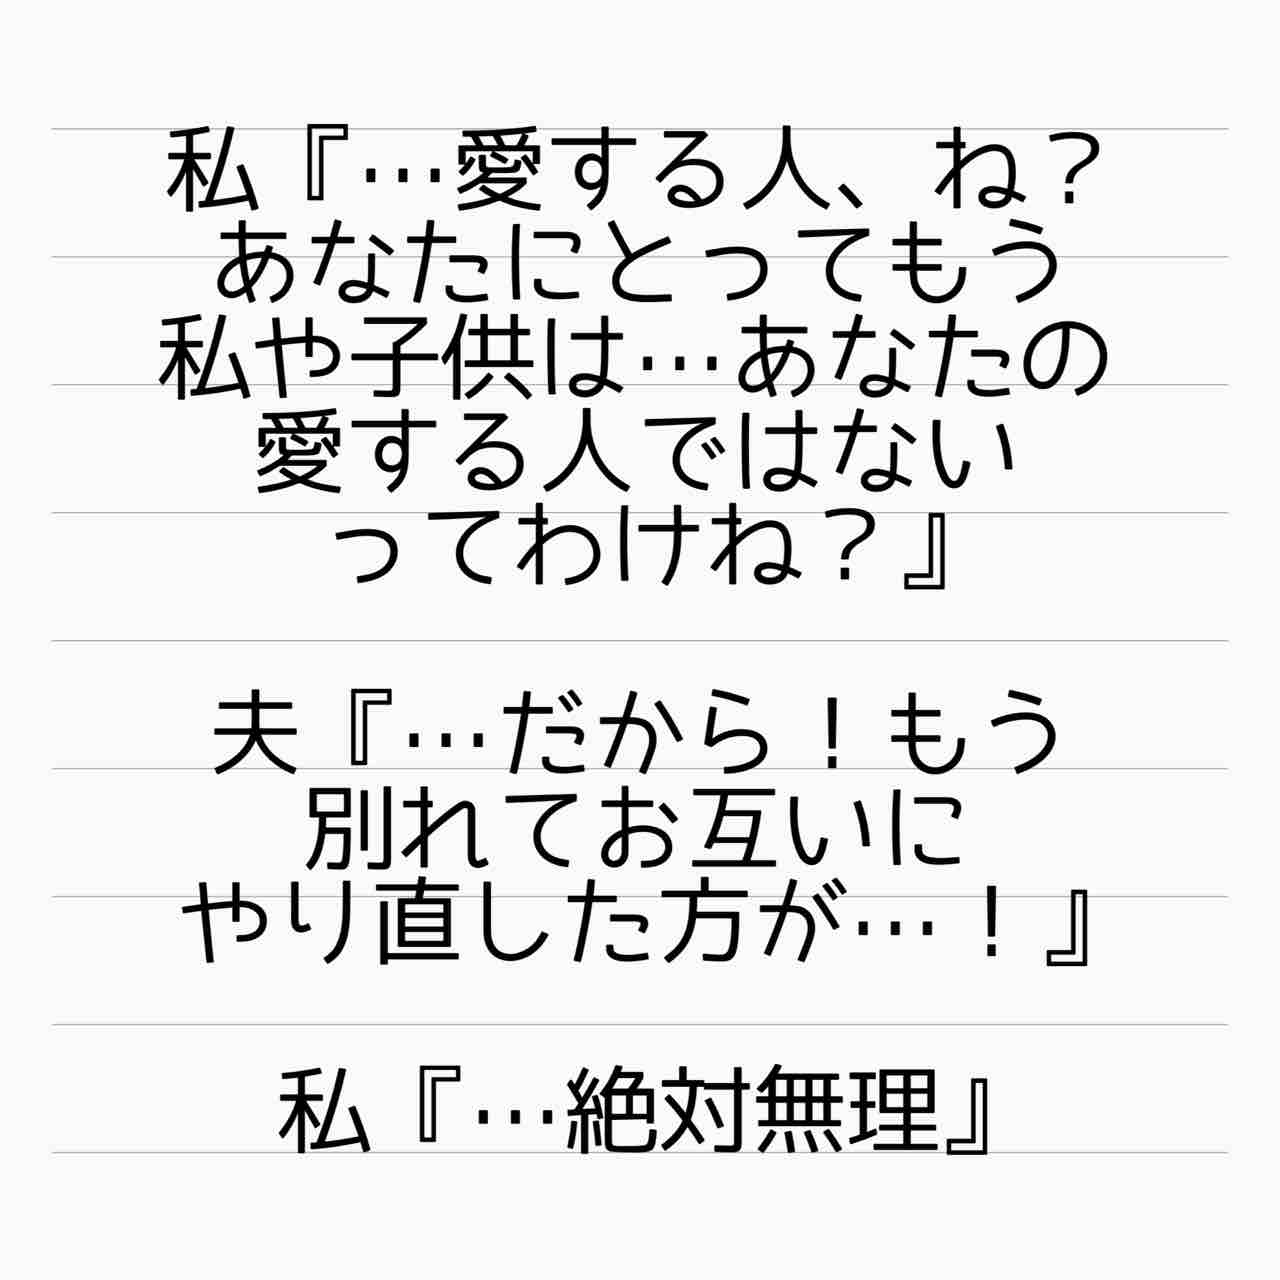 私『…愛する人、ね？
あなたにとってもう
私や子供は…あなたの
愛する人ではない
ってわけね？』
夫『…だから！もう
別れてお互いに
やり直した方が…！』
私『…絶対無理』